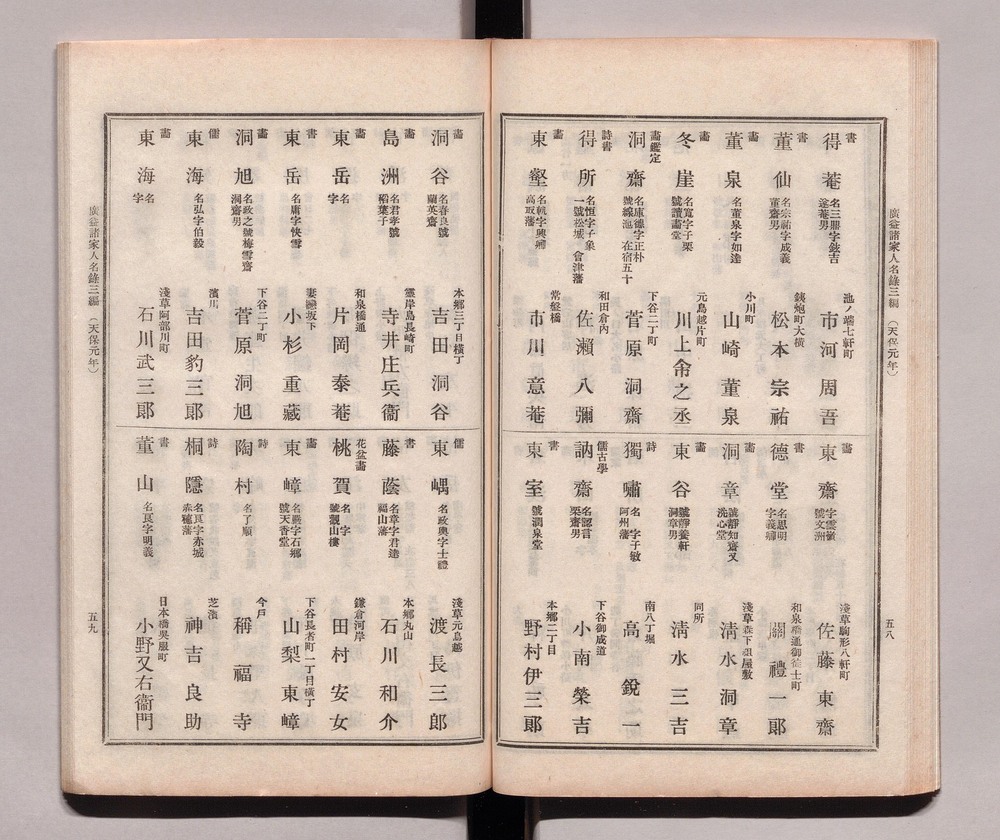 廣益諸家人名錄三編 (天保元年)
五八
書
得菴
名三鼎字鉉吉
遂菴男
池ノ端七軒町
市河周吾
書
董仙
名宗祐字成義
董齋男
鉄炮町大橫
松本宗祐
畫
董泉
名董泉字如達
小川町
山崎董泉
畫
冬崖
名寬字子栗
號讀畫堂
元島越片町
川上舍之丞
畫鑑定
洞齋
名庫德字正朴
號綠池 在宿五十
下谷二丁町
菅原洞齋
詩書
得所
名恒字子象
一號松城 會津藩
和田倉內
佐瀨八彌
畫
東壑
名軏字興卿
高取藩
常盤橋
市川意菴
畫
東齋
字雲嶺
號文洲
淺草駒形八軒町
佐藤東齋
書
德堂
名思明
字義卿
和泉橋通御徒士町
關禮一郎
畫
洞章
號靜知齋又
洗心堂
淺草森下組屋敷
淸水洞章
畫
東谷
號靜養軒
洞章男
同所
淸水三吉
詩
獨嘯
名 字子敏
阿州藩
南八丁堀
高銳一
儒古學
訥齋
名認言
栗齋男
下谷御成道
小南榮吉
書
東室
號潤泉堂
本鄉二丁目
野村伊三郞
畫
洞谷
名春良號
蘭英齋
本鄉三丁目橫丁
吉田洞谷
畫
島洲
名君幸號
稻葉子
靈岸島長崎町
寺井庄兵衞
畫
東岳
名
字
和泉橋通
片岡泰菴
書
東岳
名庸字快雪
妻戀坂下
小杉重藏
畫
洞旭
名政之號梅雪齋
洞齋男
下谷二丁町
菅原洞旭
儒
東海
名弘字伯毅
濱川
吉田豹三郞
畫
東海
名
字
淺草阿部川町
石川武三郞
儒
東嵎
名政輿字士禮
淺草元島越
渡長三郞
書
藤蔭
名章字君達
福山藩
本鄉丸山
石川和介
花盆畫
桃賀
名 字
號觀山樓
鎌倉河岸
田村安女
畫
東嶂
名嚴字石鄉
號天香堂
下谷長者町一丁目橫丁
山梨東嶂
詩
陶村
名了願
今戶
稱福寺
詩
桐隱
名良字赤城
赤穗藩
芝濱
神吉良助
書
董山
名良字明義
日本橋吳服町
小野又右衞門
廣益諸家人名錄三編 (天保元年)
五九